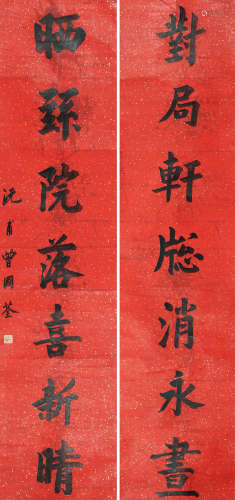 對局軒牕消永晝
晒絲院落喜新晴
沅甫曾國荃